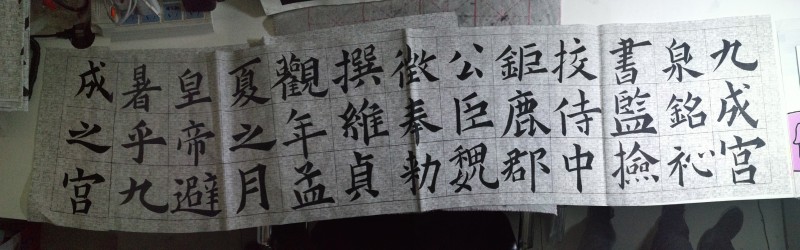 九成宮
泉銘祕
書監撿
挍侍中
鉅鹿郡
公臣魏
徵奉勑
撰維貞
觀年孟
夏之月
皇帝避
暑乎九
成之宮